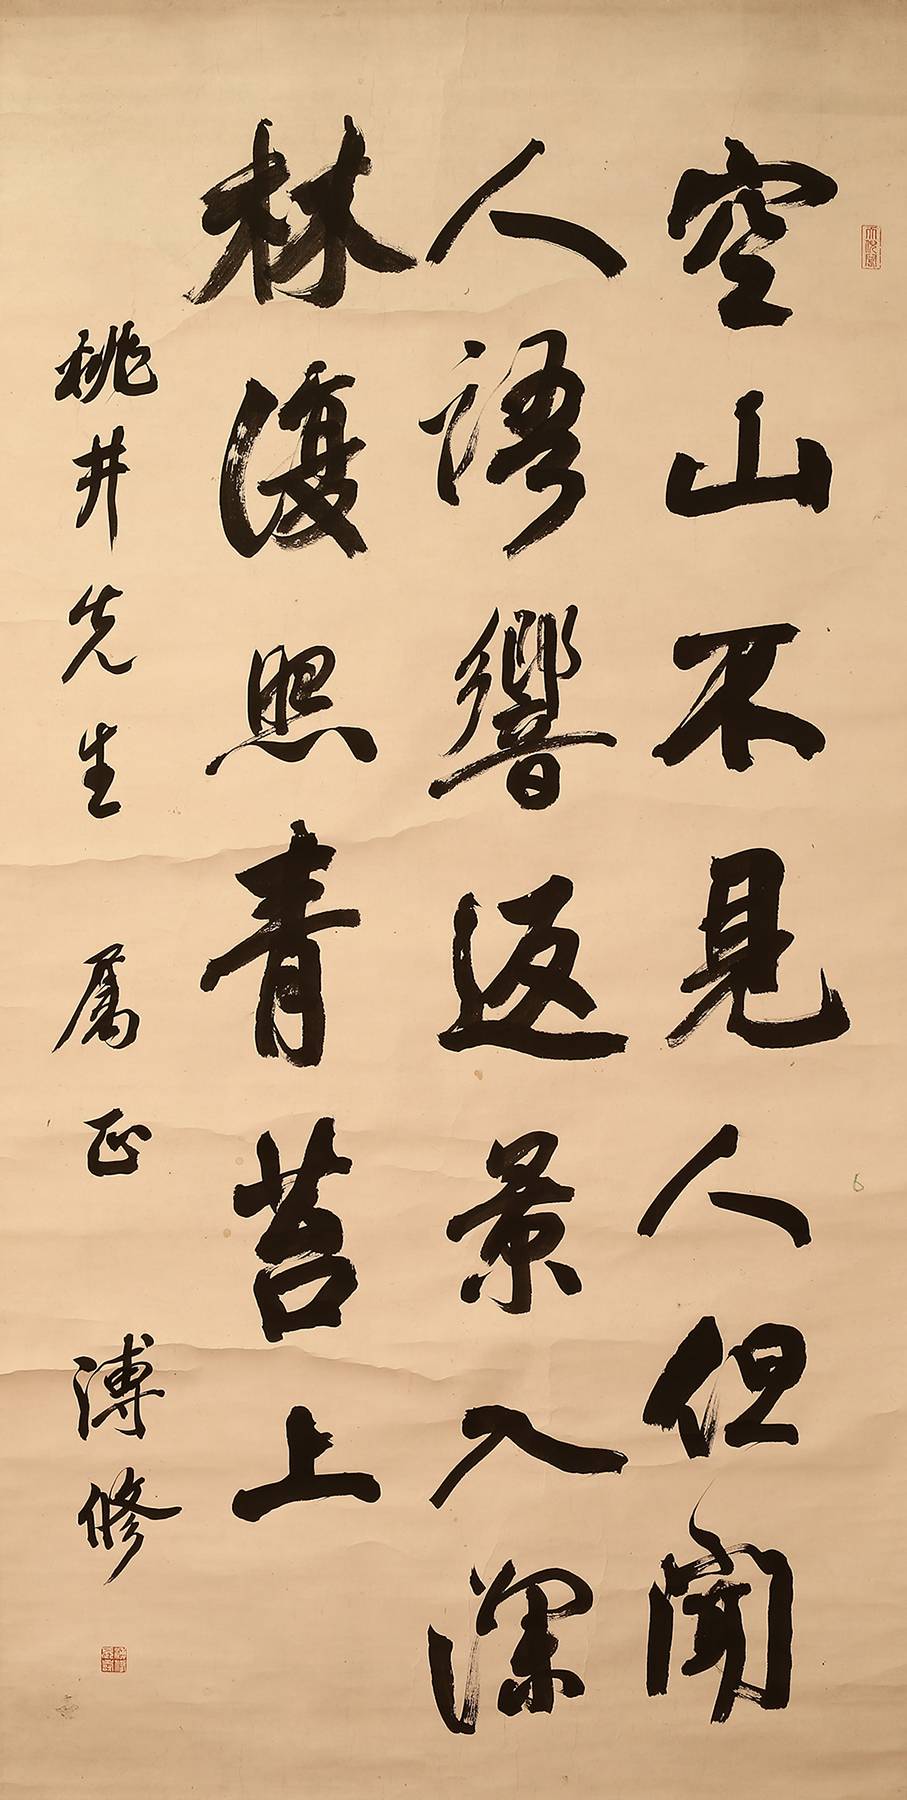 空山不見人但聞
人語響返景入深
林復照青苔上
桃井先生 屬正 溥修